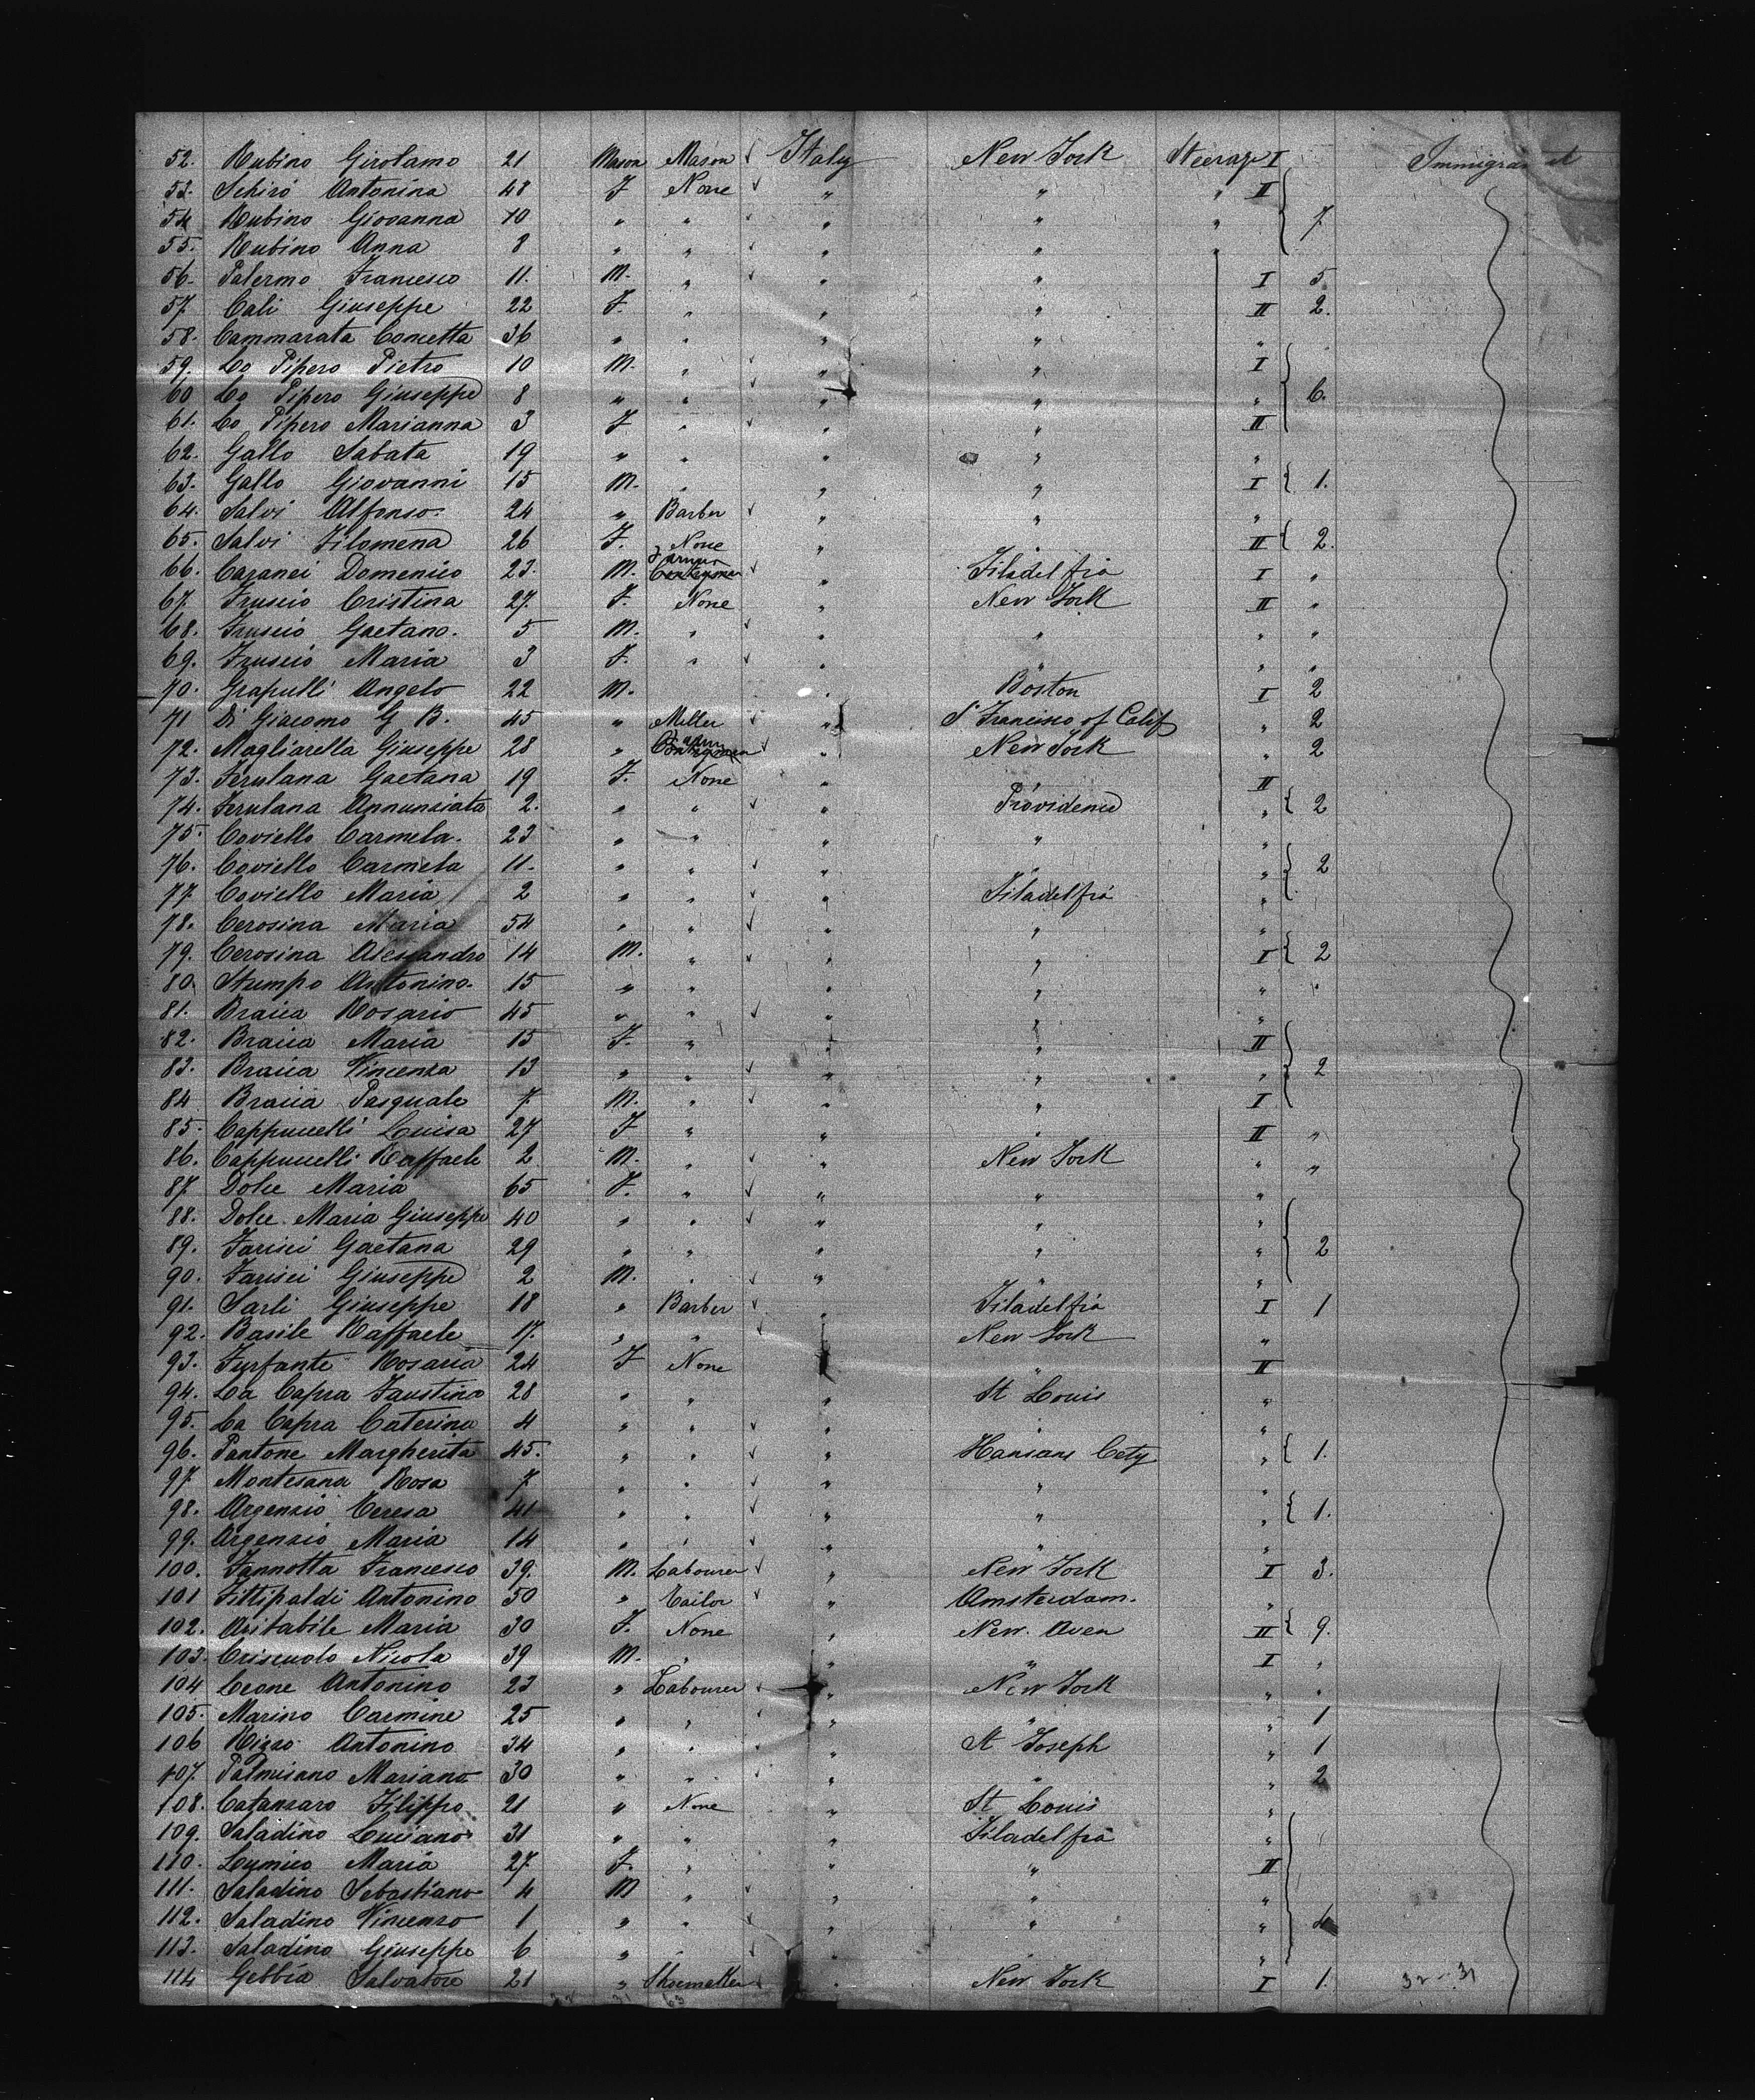 52. Rubino Girolamo 21 Mason Mason ✓ Italy New York Steerage I Immigrant
53. Schirò Antonina 48 F None ✓ " " " II
54 Rubino Giovanna 10 " " ✓ " " " 7
55. Rubino Anna 8 " " ✓ " " "
56. Palermo Francesco 11. M. " ✓ " " I 5
57. Cali Giuseppe 22 F. " " " II 2.
58. Cammarata Concetta 36 " " " " "
59. Lo Pipero Pietro 10 M. " ✓ " " I
60 Lo Pipero Giuseppe 8 " " ✓ " " " 6.
61. Lo Pipero Marianna 3 F " ✓ " " II
62. Gallo Sabata 19 " " " " "
63. Gallo Giovanni 15 M. " " " I 1.
64. Salvi Alfonso 24 " Barber ✓ " " "
65. Salvi Filomena 26 F. None " " II 2.
66. Caranei Domenico 23. M. ✓ " Filadelfia I "
67. Fruscio Cristina 27. F. None " New York II "
68. Fruscio Gaetano. 5 M. " ✓ " " " "
69. Fruscio Maria 3 F. " ✓ " " " "
70. Grapulli Angelo 22 M. " Boston I 2
71 Di Giacomo G B. 45 " Miller ✓ " S' Francisco of Calif " 2
72. Magliarella Giuseppe 28 " ✓ " New York " 2
73. Ferulana Gaetana 19 F. None " " II
74. Ferulana Annunziata 2. " " ✓ " Providence " 2
75. Coviello Carmela. 23 " " " " "
76. Coviello Carmela 11. " " ✓ " " " 2
77. Coviello Maria 2 " " ✓ " Filadelfia "
78. Cerosina Maria 54 " " ✓ " " "
79. Cerosina Alessandro 14 M. " ✓ " " I 2
80. Stumpo Antonino. 15 " " " " " "
81. Braica Rosario 45 " " ✓ " " "
82. Braica Maria 15 F. " " " II
83. Braica Vincenza 13 " " ✓ " " " 2
84 Braica Pasquale 7. M. " ✓ " " I
85. Cappuccelli Luisa 27 F " " " II "
86. Cappuccelli Raffaele 2 M. " ✓ " New York " "
87. Dolce Maria 65 F. " ✓ " " "
88. Dolce Maria Giuseppe 40 " " ✓ " " "
89. Farisei Gaetana 29 " " " " " 2
90. Farisei Giuseppe 2 M. " ✓ " " "
91. Sarli Giuseppe 18 " Barber ✓ " Filadelfia I 1
92. Basile Raffaele 17. " " ✓ New York "
93. Furfante Rosaria 24 F None " II
94. La Capra Faustina 28 " " " St Louis "
95. La Capra Caterina 4 " " ✓ " " "
96. Pantone Margherita 45. " " ✓ " Hansans Cety " 1.
97. Montesana Rosa 7. " " ✓ " " "
98. Argenzio Teresa 41 " " ✓ " " " 1.
99. Argenzio Maria 14 " " ✓ " " "
100. Iannotta Francesco 39. M. Labourer ✓ " New York I 3.
101 Fittipaldi Antonino 50 " Tailor ✓ " Amsterdam. "
102. Aritabile Maria 30 F. None " New. Aven II 9.
103. Criscuolo Nicola 39 M. " " " I "
104 Leone Antonino 23 " Labourer ✓ " New York " "
105. Marino Carmine 25 " " ✓ " " " 1
106 Rizzo Antonino 34 " " ✓ " St Joseph " 1
107. Palmisano Mariano 30 " " ✓ " " " 2
108. Catanzaro Filippo 21 " None " St Louis "
109. Saladino Luciano 31 " " " Filadelfia "
110. Lumico Maria 27. F. " " " II
111. Saladino Sebastiano 4 M " ✓ " " "
112. Saladino Vincenzo 1 " " ✓ " " " 4
113. Saladino Giuseppe 6 " " ✓ " " "
114 Gebbia Salvatore 21 " Shoemaker ✓ " New York I 1. 32 - 31
32 31 63